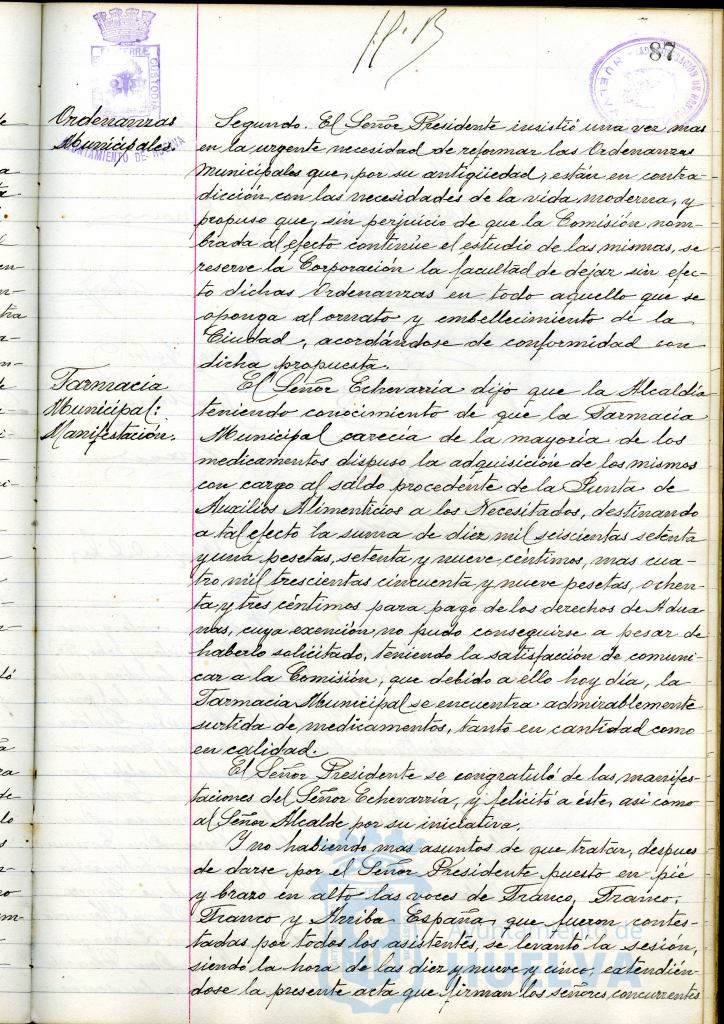 87
Ordenanzas
Municipales.
AYUNTAMIENTO DE HUELVA
Segundo. El Señor Presidente insistió una vez mas
en la urgente necesidad de reformar las Ordenanzas
Municipales que, por su antigüedad, están en contra-
dicción con las necesidades de la vida moderna, y
propuso que, sin perjuicio de que la Comisión nom-
brada al efecto continúe el estudio de las mismas, se
reserve la Corporación la facultad de dejar sin efec-
to dichas Ordenanzas en todo aquello que se
oponga al ornato y embellecimiento de la
Ciudad, acordándose de conformidad con
dicha propuesta.
Farmacia
Municipal:
Manifestación.
El Señor Echevarría dijo que la Alcaldía
teniendo conocimiento de que la Farmacia
Municipal carecía de la mayoría de los
medicamentos dispuso la adquisición de los mismos
con cargo al saldo procedente de la Junta de
Auxilios Alimenticios a los Necesitados, destinando
a tal efecto la suma de diez mil seiscientas setenta
y una pesetas, setenta y nueve céntimos, mas cua-
tro mil trescientas cincuenta y nueve pesetas, ochen-
ta y tres céntimos para pago de los derechos de Adua-
nas, cuya exención no pudo conseguirse a pesar de
haberlo solicitado, teniendo la satisfacción de comuni-
car a la Comisión, que debido a ello hoy día, la
Farmacia Municipal se encuentra admirablemente
surtida de medicamentos, tanto en cantidad como
en calidad.
El Señor Presidente se congratuló de las manifes-
taciones del Señor Echevarría, y felicitó a éste, así como
al Señor Alcalde por su iniciativa.
Y no habiendo mas asuntos de que tratar, despues
de darse por el Señor Presidente puesto en pié
y brazo en alto las voces de Franco, Franco,
Franco y Arriba España, que fueron contes-
tadas por todos los asistentes, se levantó la sesion,
siendo la hora de las diez y nueve y cinco, extendién-
dose la presente acta que firman los señores concurrentes
Ayuntamiento de
HUELVA